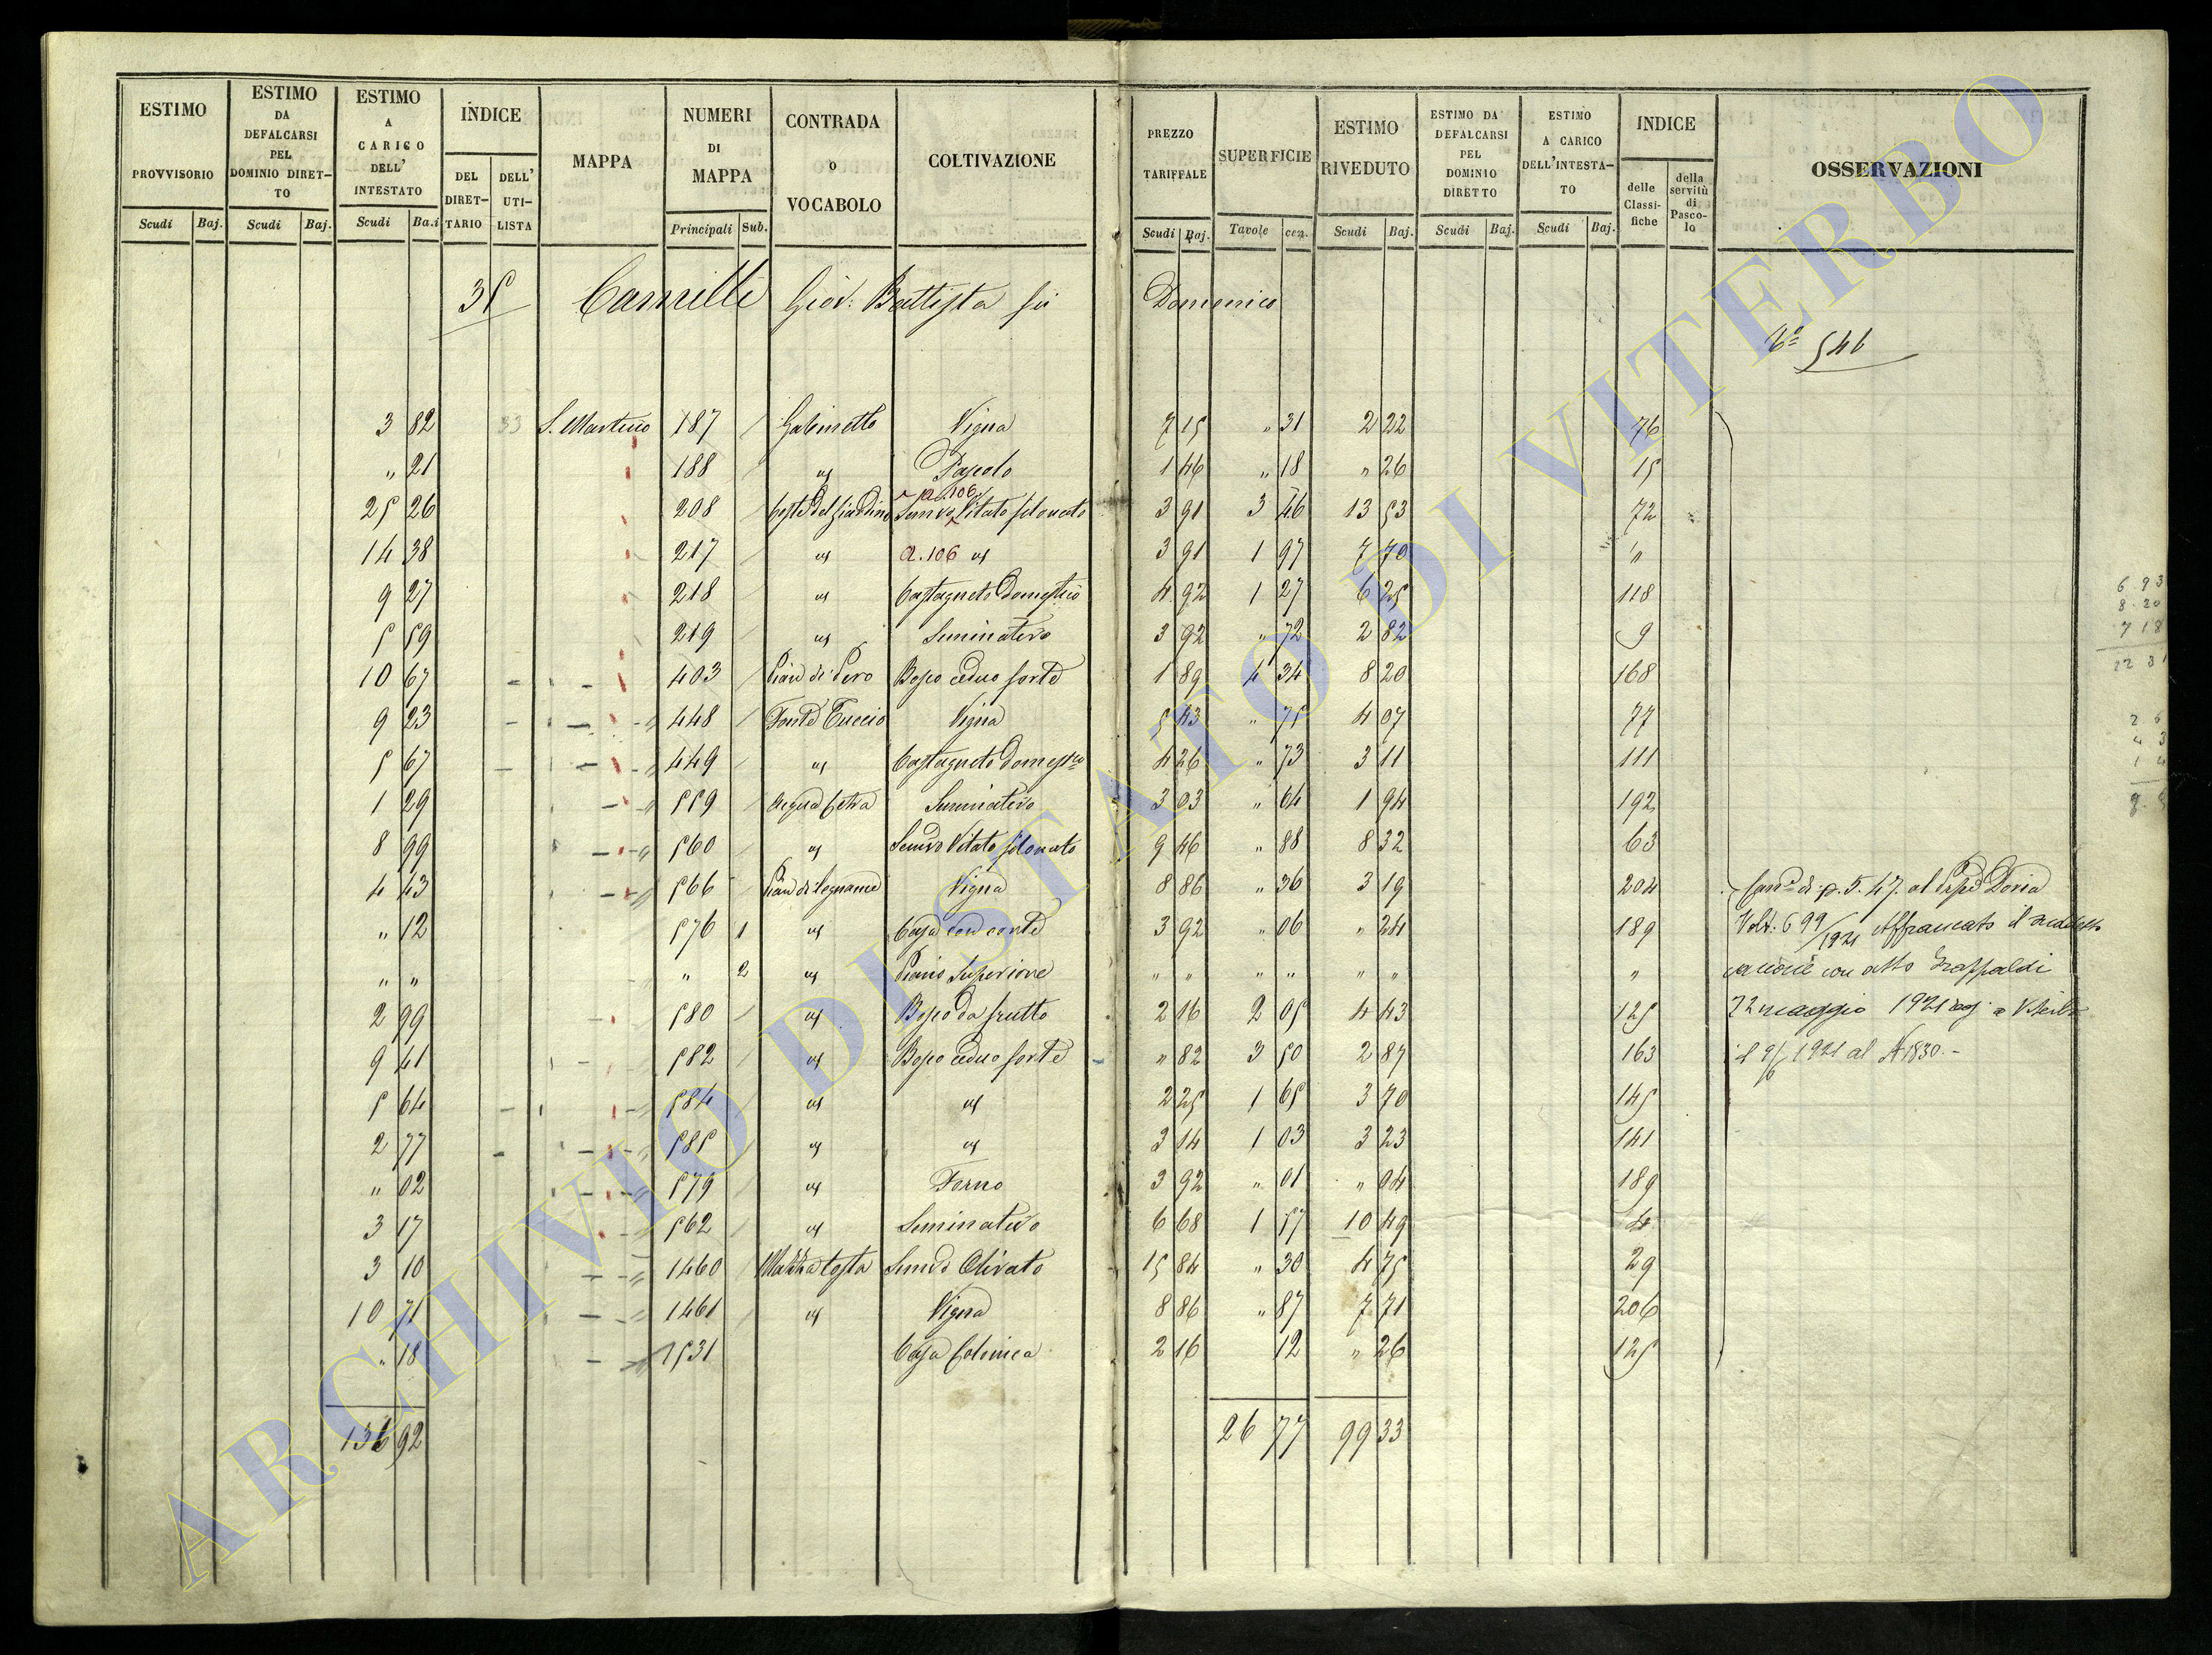 ESTIMO PROVVISORIO Scudi Baj.
ESTIMO DA DEFALCARSI PEL DOMINIO DIRETTO Scudi Baj.
ESTIMO A CARICO DELL' INTESTATO Scudi Ba.i
INDICE DEL DIRETTARIO DELL' UTILISTA
MAPPA
NUMERI DI MAPPA Principali Sub.
CONTRADA o VOCABOLO
COLTIVAZIONE
PREZZO TARIFFALE Scudi Baj.
SUPERFICIE Tavole cen.
ESTIMO RIVEDUTO Scudi Baj.
ESTIMO DA DEFALCARSI PEL DOMINIO DIRETTO Scudi Baj.
ESTIMO A CARICO DELL'INTESTATO Scudi Baj.
INDICE delle Classifiche della servitù di Pascolo
OSSERVAZIONI
35 Camilli Giov: Battista fù Domenico
546
3 82 33 S. Martino 187 Gabinetto Vigna 7 15 " 31 2 22 76
" 21 188 us Pascolo 1 46 " 18 " 26 15
a. 106
25 26 208 Coste del Giardino Semvo Vitato filonato 3 91 3 46 13 53 72
14 38 217 us a. 106 us 3 91 1 97 7 70 "
9 27 218 us Castagneto Domestico 4 92 1 27 6 25 118
5 59 219 us Seminativo 3 92 " 72 2 82 9
10 67 403 Pian di Pero Bosco ceduo forte 1 89 4 34 8 20 168
9 23 448 Fonte Tuccio Vigna 5 43 " 75 4 07 77
5 67 449 us Castagneto Domesco 4 26 " 73 3 11 111
1 29 559 Acqua Cetra Seminativo 3 03 " 64 1 94 192
8 99 560 us Semvo Vitato filonato 9 46 " 88 8 32 63
4 43 566 Pian di Legname Vigna 8 86 " 36 3 19 204
" 12 576 1 us Casa con corte 3 92 " 06 " 24 189
" " " 2 us Piano Superiore " " " " " " "
2 99 580 us Bosco da frutto 2 16 2 05 4 43 125
9 41 582 us Bosco ceduo forte " 82 3 50 2 87 163
5 64 584 us us 2 25 1 65 3 70 145
2 77 585 us us 3 14 1 03 3 23 141
" 02 579 us Forno 3 92 " 01 " 04 189
3 17 562 us Seminativo 6 68 1 57 10 49 4
3 10 1460 Mazza tosta Semvo Olivato 15 84 " 30 4 75 29
10 71 1461 us Vigna 8 86 " 87 7 71 206
" 18 1531 Casa Colonica 2 16 12 " 26 125
136 92 26 77 99 33
di p. 5. 47. al Doria
Volt: 699/1921 Affrancato il suddetto
canone con atto
22 maggio 1921 reg. a Viterbo
il 9/6 1921 al N 1830.-
6 93
8 20
7 18
22 31
ARCHIVIO DI STATO DI VITERBO